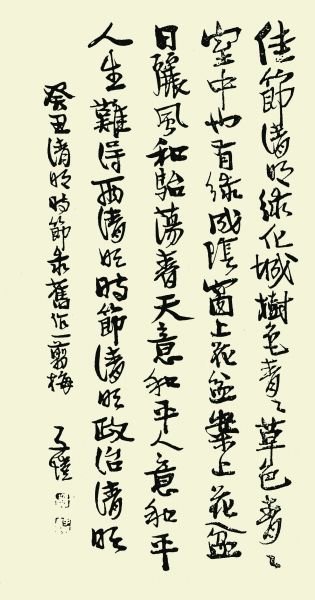 佳節清明綠化城樹色青々草色青々
室中也有綠成陰窗上花盆案上花盆
日麗風和駘蕩春天意和平人意和平
人生難得兩清明時節清明政治清明
癸丑清明時節录舊作一剪梅 子愷